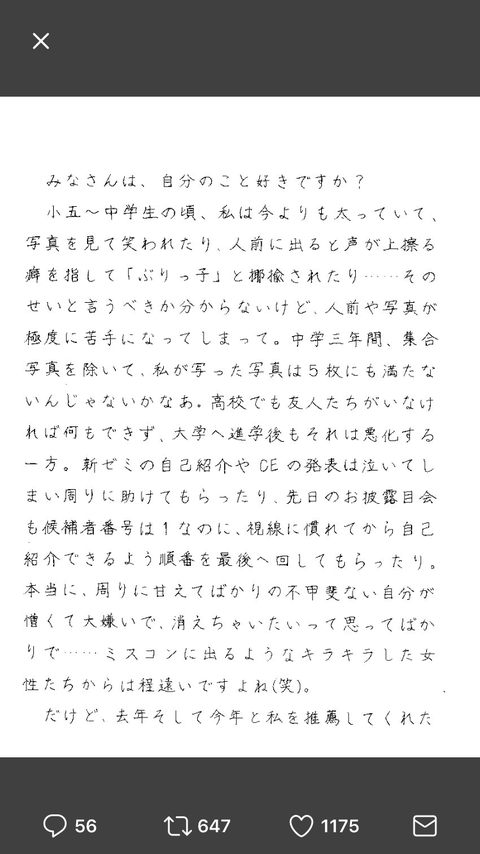 みなさんは、自分のこと好きですか？
小五～中学生の頃、私は今よりも太っていて、
写真を見て笑われたり、人前に出ると声が上擦る
癖を指して「ぶりっ子」と揶揄されたり……その
せいと言うべきか分からないけど、人前や写真が
極度に苦手になってしまって。中学三年間、集合
写真を除いて、私が写った写真は5枚にも満たな
いんじゃないかなあ。高校でも友人たちがいなけ
れば何もできず、大学へ進学後もそれは悪化する
一方。新ゼミの自己紹介やCEの発表は泣いてし
まい周りに助けてもらったり、先日のお披露目会
も候補者番号は1なのに、視線に慣れてから自己
紹介できるよう順番を最後へ回してもらったり。
本当に、周りに甘えてばかりの不甲斐ない自分が
憎くて大嫌いで、消えちゃいたいって思ってばか
りで……ミスコンに出るようなキラキラした女
性たちからは程遠いですよね(笑)。
だけど、去年そして今年と私を推薦してくれた
56
647
1175